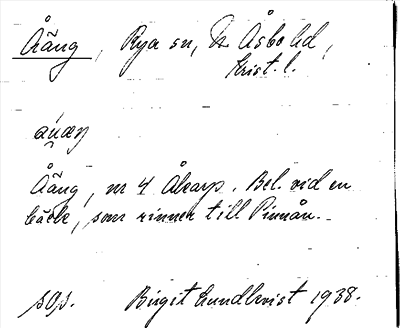 Åäng, Rya sn, N. Åsbo hd,
Krist. l.
Åäng, nr 4 Åkarp. Bel. vid en
bäck, som rinner till Pinnån.
sgs. Birgit Lundkvist 1938.